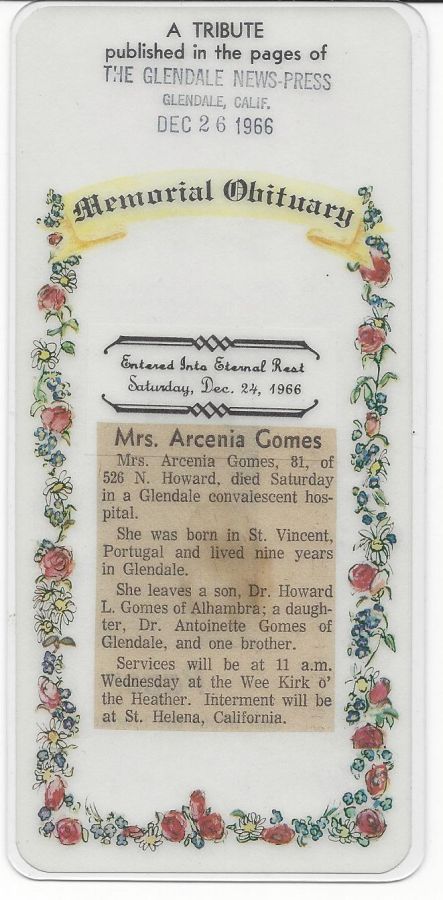 A TRIBUTE
published in the pages of
THE GLENDALE NEWS-PRESS
GLENDALE, CALIF.
DEC 26 1966
Memorial Obituary
Entered Into Eternal Rest
Saturday, Dec. 24, 1966
Mrs. Arcenia Gomes
Mrs. Arcenia Gomes, 81, of
526 N. Howard, died Saturday
in a Glendale convalescent hos-
pital.
She was born in St. Vincent,
Portugal and lived nine years
in Glendale.
She leaves a son, Dr. Howard
L. Gomes of Alhambra; a daugh-
ter, Dr. Antoinette Gomes of
Glendale, and one brother.
Services will be at 11 a.m.
Wednesday at the Wee Kirk o'
the Heather. Interment will be
at St. Helena, California.